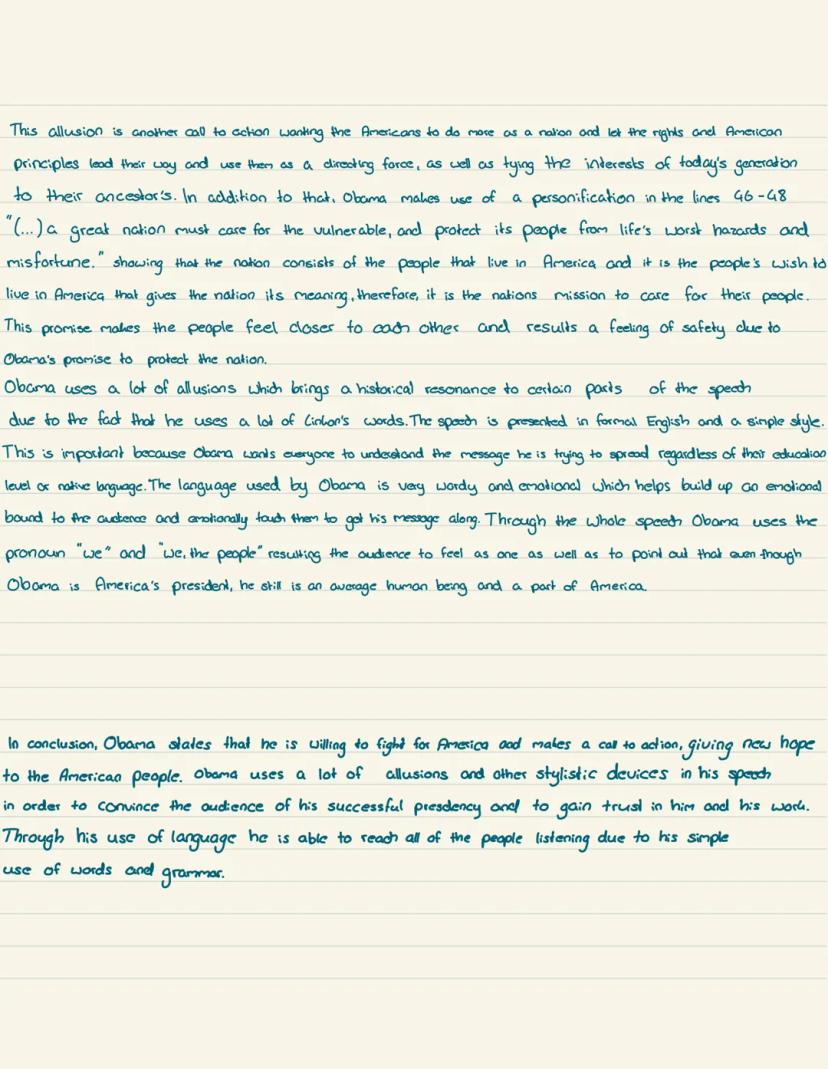 This allusion is another call to action wanting the Americans to do more as a nation and let the rights and American
principles lead their way and use them as a directing force, as well as tying the interests of today's generation
to their ancestor's. In addition to that, Obama makes use of a personification in the lines 46-48
"(...) a great nation must care for the vulnerable, and protect its people from life's worst hazards and
misfortune." showing that the nation consists of the people that live in America and it is the people's wish to
live in America that gives the nation its meaning, therefore, it is the nations mission to care for their people.
This promise makes the people feel closer to each other and results a feeling of safety due to
Obama's promise to protect the nation.
Obama uses a lot of allusions which brings a historical resonance to certain parts of the speech
due to the fact that he uses a lot of Linkon's words. The speech is presented in formal English and a simple style.
This is important because Obama wants everyone to understand the message he is trying to spread regardless of their education
level or native language. The language used by Obama is very wordy and emotional which helps build up an emotional
bound to the audience and emotionally touch them to get his message along. Through the whole speech Obama uses the
pronoun "we" and "we, the people" resulting the audience to feel as one as well as to point out that even though
Obama is America's president, he still is an average human being and a part of America.
In conclusion, Obama states that he is willing to fight for America and makes a call to action, giving new hope
to the American people. Obama uses a lot of allusions and other stylistic devices in his speech
in order to convince the audience of his successful presdency and to gain trust in him and his work.
Through his use of language he is able to reach all of the people listening due to his simple
use of words and grammar.